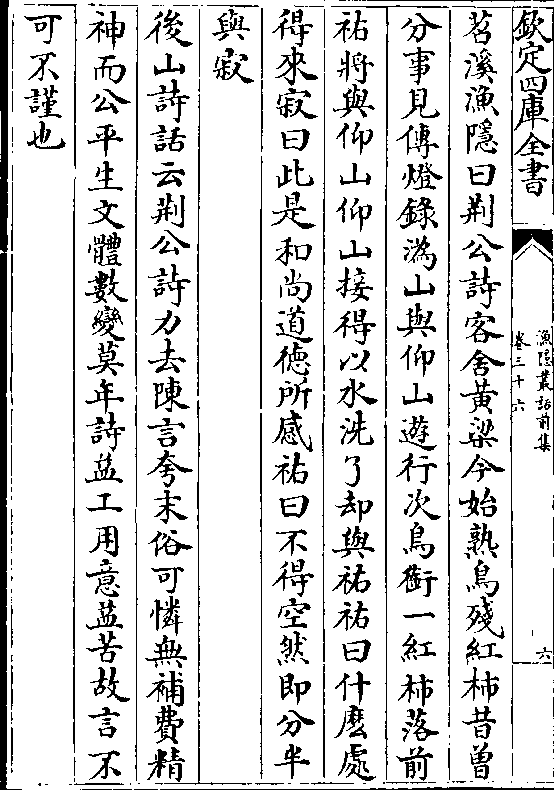 欽定四庫全書
漁隱叢話前集
卷三十六
六
苕溪漁隱曰荆公詩客舍黃粱今始熟鳥殘紅柿昔曽
分事見傳燈錄溈山與仰山遊行次烏銜一紅柿落前
祐將與仰山仰山接得以水洗了却與祐祐曰什麽處
得來寂曰此是和尚道徳所感祐曰不得空然即分半
與寂
後山詩話云荆公詩力去陳言夸末俗可憐無補費精
神而公平生文體數變莫年詩益工用意益苦故言不
可不謹也